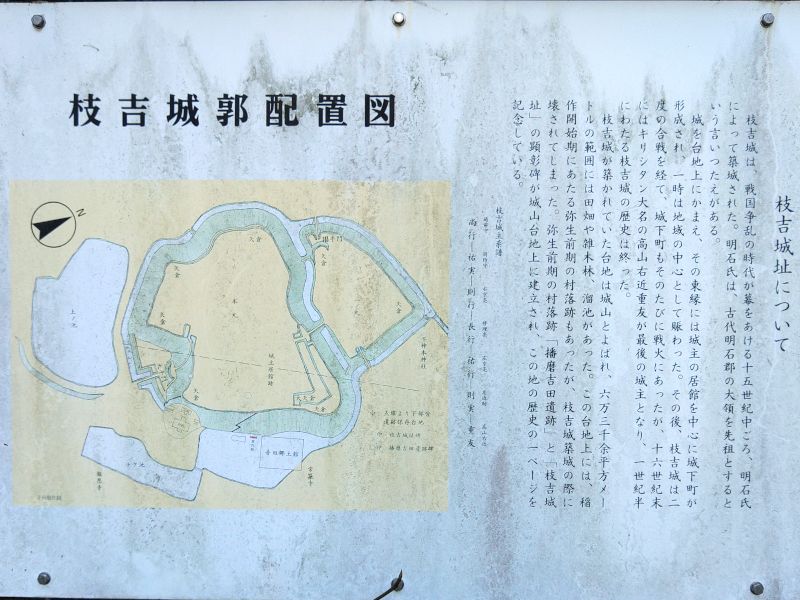 枝吉城郭配置図
枝吉城址について
枝吉城は、戦国争乱の時代が幕をあける十五世紀中ごろ、明石氏
によって築城された。明石氏は、古代明石郡の大領を先祖とすると
いう言いつたえがある。
城を台地上にかまえ、その東縁には城主の居館を中心に城下町が
形成され、一時は地域の中心として賑わった。その後、枝吉城は二
度の合戦を経て、城下町もそのたびに戦火にあったが、十六世紀末
にはキリシタン大名の高山右近重友が最後の城主となり、一世紀半
にわたる枝吉城の歴史は終った。
枝吉城が築かれていた台地は城山とよばれ、六万三千余平方メー
トルの範囲には田畑や雑木林、溜池があった。この台地上には、稲
作開始期にあたる弥生前期の村落跡もあったが、枝吉城築城の際に
壊されてしまった。弥生前期の村落跡「播磨吉田遺跡」と「枝吉城
址」の顕彰碑が城山台地上に建立され、この地の歴史の一ページを
記念している。
枝吉城主系譜
高行―祐実―則行―長行―祐行―則実―重友
N
上ノ池
矢倉
矢倉
矢倉
矢倉
矢倉
矢倉
矢倉
本丸
城主居館跡
下神本神社
吉田郷土館
龍恩寺